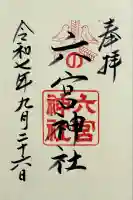 奉拝
六宮神社
六宮
神社
令和七年九月二十六日